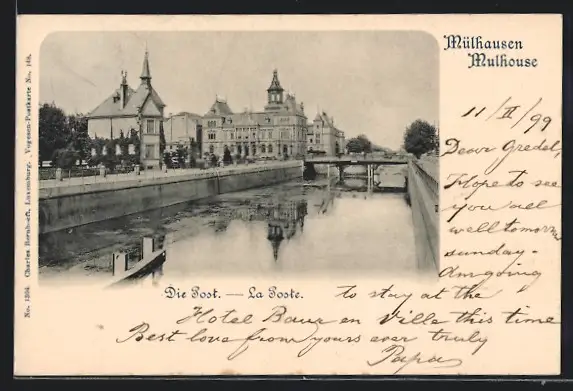 Mülhausen
Mulhouse
11/IX/99
Dear Gredel,
Hope to see
you all
well tomorrow
sunday-
Am going
to stay at the
Hotel Baur en Ville this time
Best love from yours ever truly
Papa
Die Post. — La Poste.
No. 1394 Charles Bernhoeft, Luxemburg. Vogesen-Postkarte No. 148.